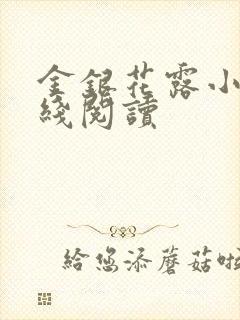 金銀花露小
綫閱讀
給您添蘑菇啦